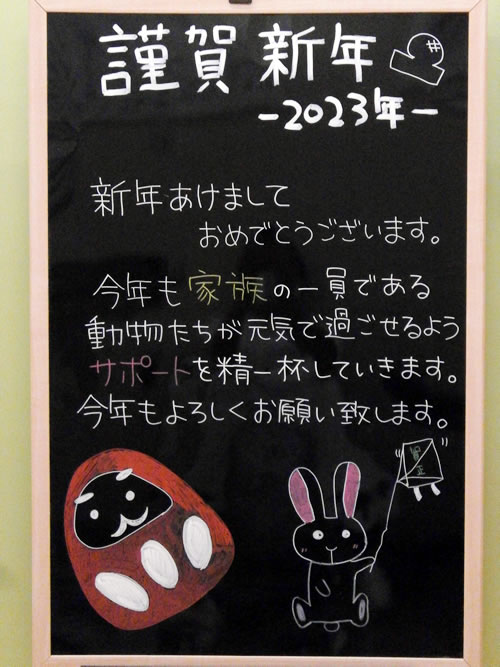 謹賀新年
-2023年-
新年あけまして
おめでとうございます。
今年も家族の一員である
動物たちが元気で過ごせるよう
サポートを精一杯していきます。
今年もよろしくお願い致します。